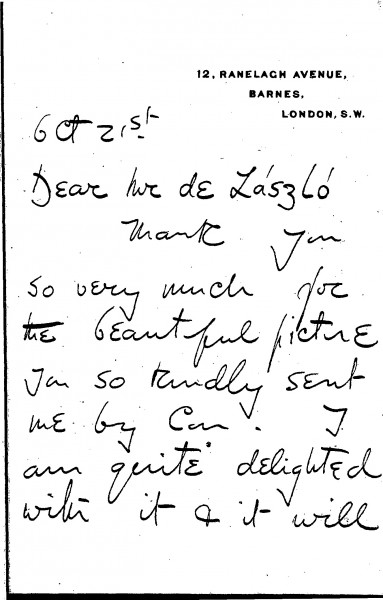 12, RANELAGH AVENUE,
BARNES,
LONDON, S.W.
Oct 21st
Dear Mr de László
Thank you
so very much for
the beautiful picture
you so kindly sent
me by Con. I
am quite delighted
with it & it will